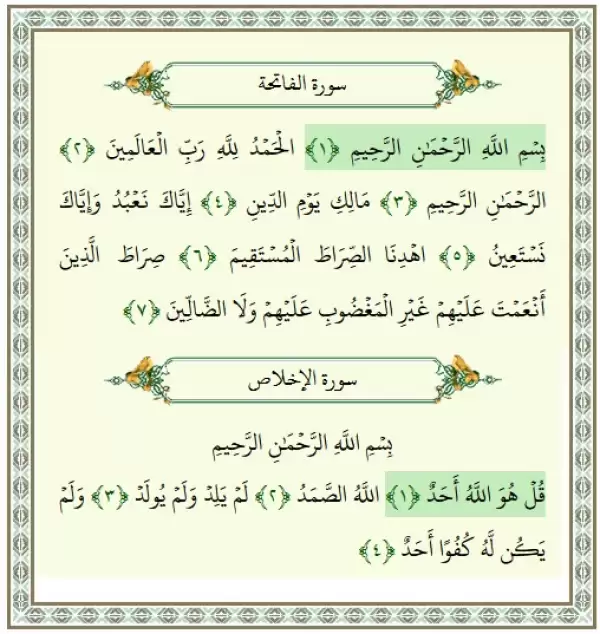 سورة الفاتحة
بِسْمِ اللَّهِ الرَّحْمَٰنِ الرَّحِيمِ ﴿١﴾ الْحَمْدُ لِلَّهِ رَبِّ الْعَالَمِينَ ﴿٢﴾
الرَّحْمَٰنِ الرَّحِيمِ ﴿٣﴾ مَالِكِ يَوْمِ الدِّينِ ﴿٤﴾ إِيَّاكَ نَعْبُدُ وَإِيَّاكَ
نَسْتَعِينُ ﴿٥﴾ اهْدِنَا الصِّرَاطَ الْمُسْتَقِيمَ ﴿٦﴾ صِرَاطَ الَّذِينَ
أَنْعَمْتَ عَلَيْهِمْ غَيْرِ الْمَغْضُوبِ عَلَيْهِمْ وَلَا الضَّالِّينَ ﴿٧﴾
سورة الإخلاص
بِسْمِ اللَّهِ الرَّحْمَٰنِ الرَّحِيمِ
قُلْ هُوَ اللَّهُ أَحَدٌ ﴿١﴾ اللَّهُ الصَّمَدُ ﴿٢﴾ لَمْ يَلِدْ وَلَمْ يُولَدْ ﴿٣﴾ وَلَمْ
يَكُن لَّهُ كُفُوًا أَحَدٌ ﴿٤﴾